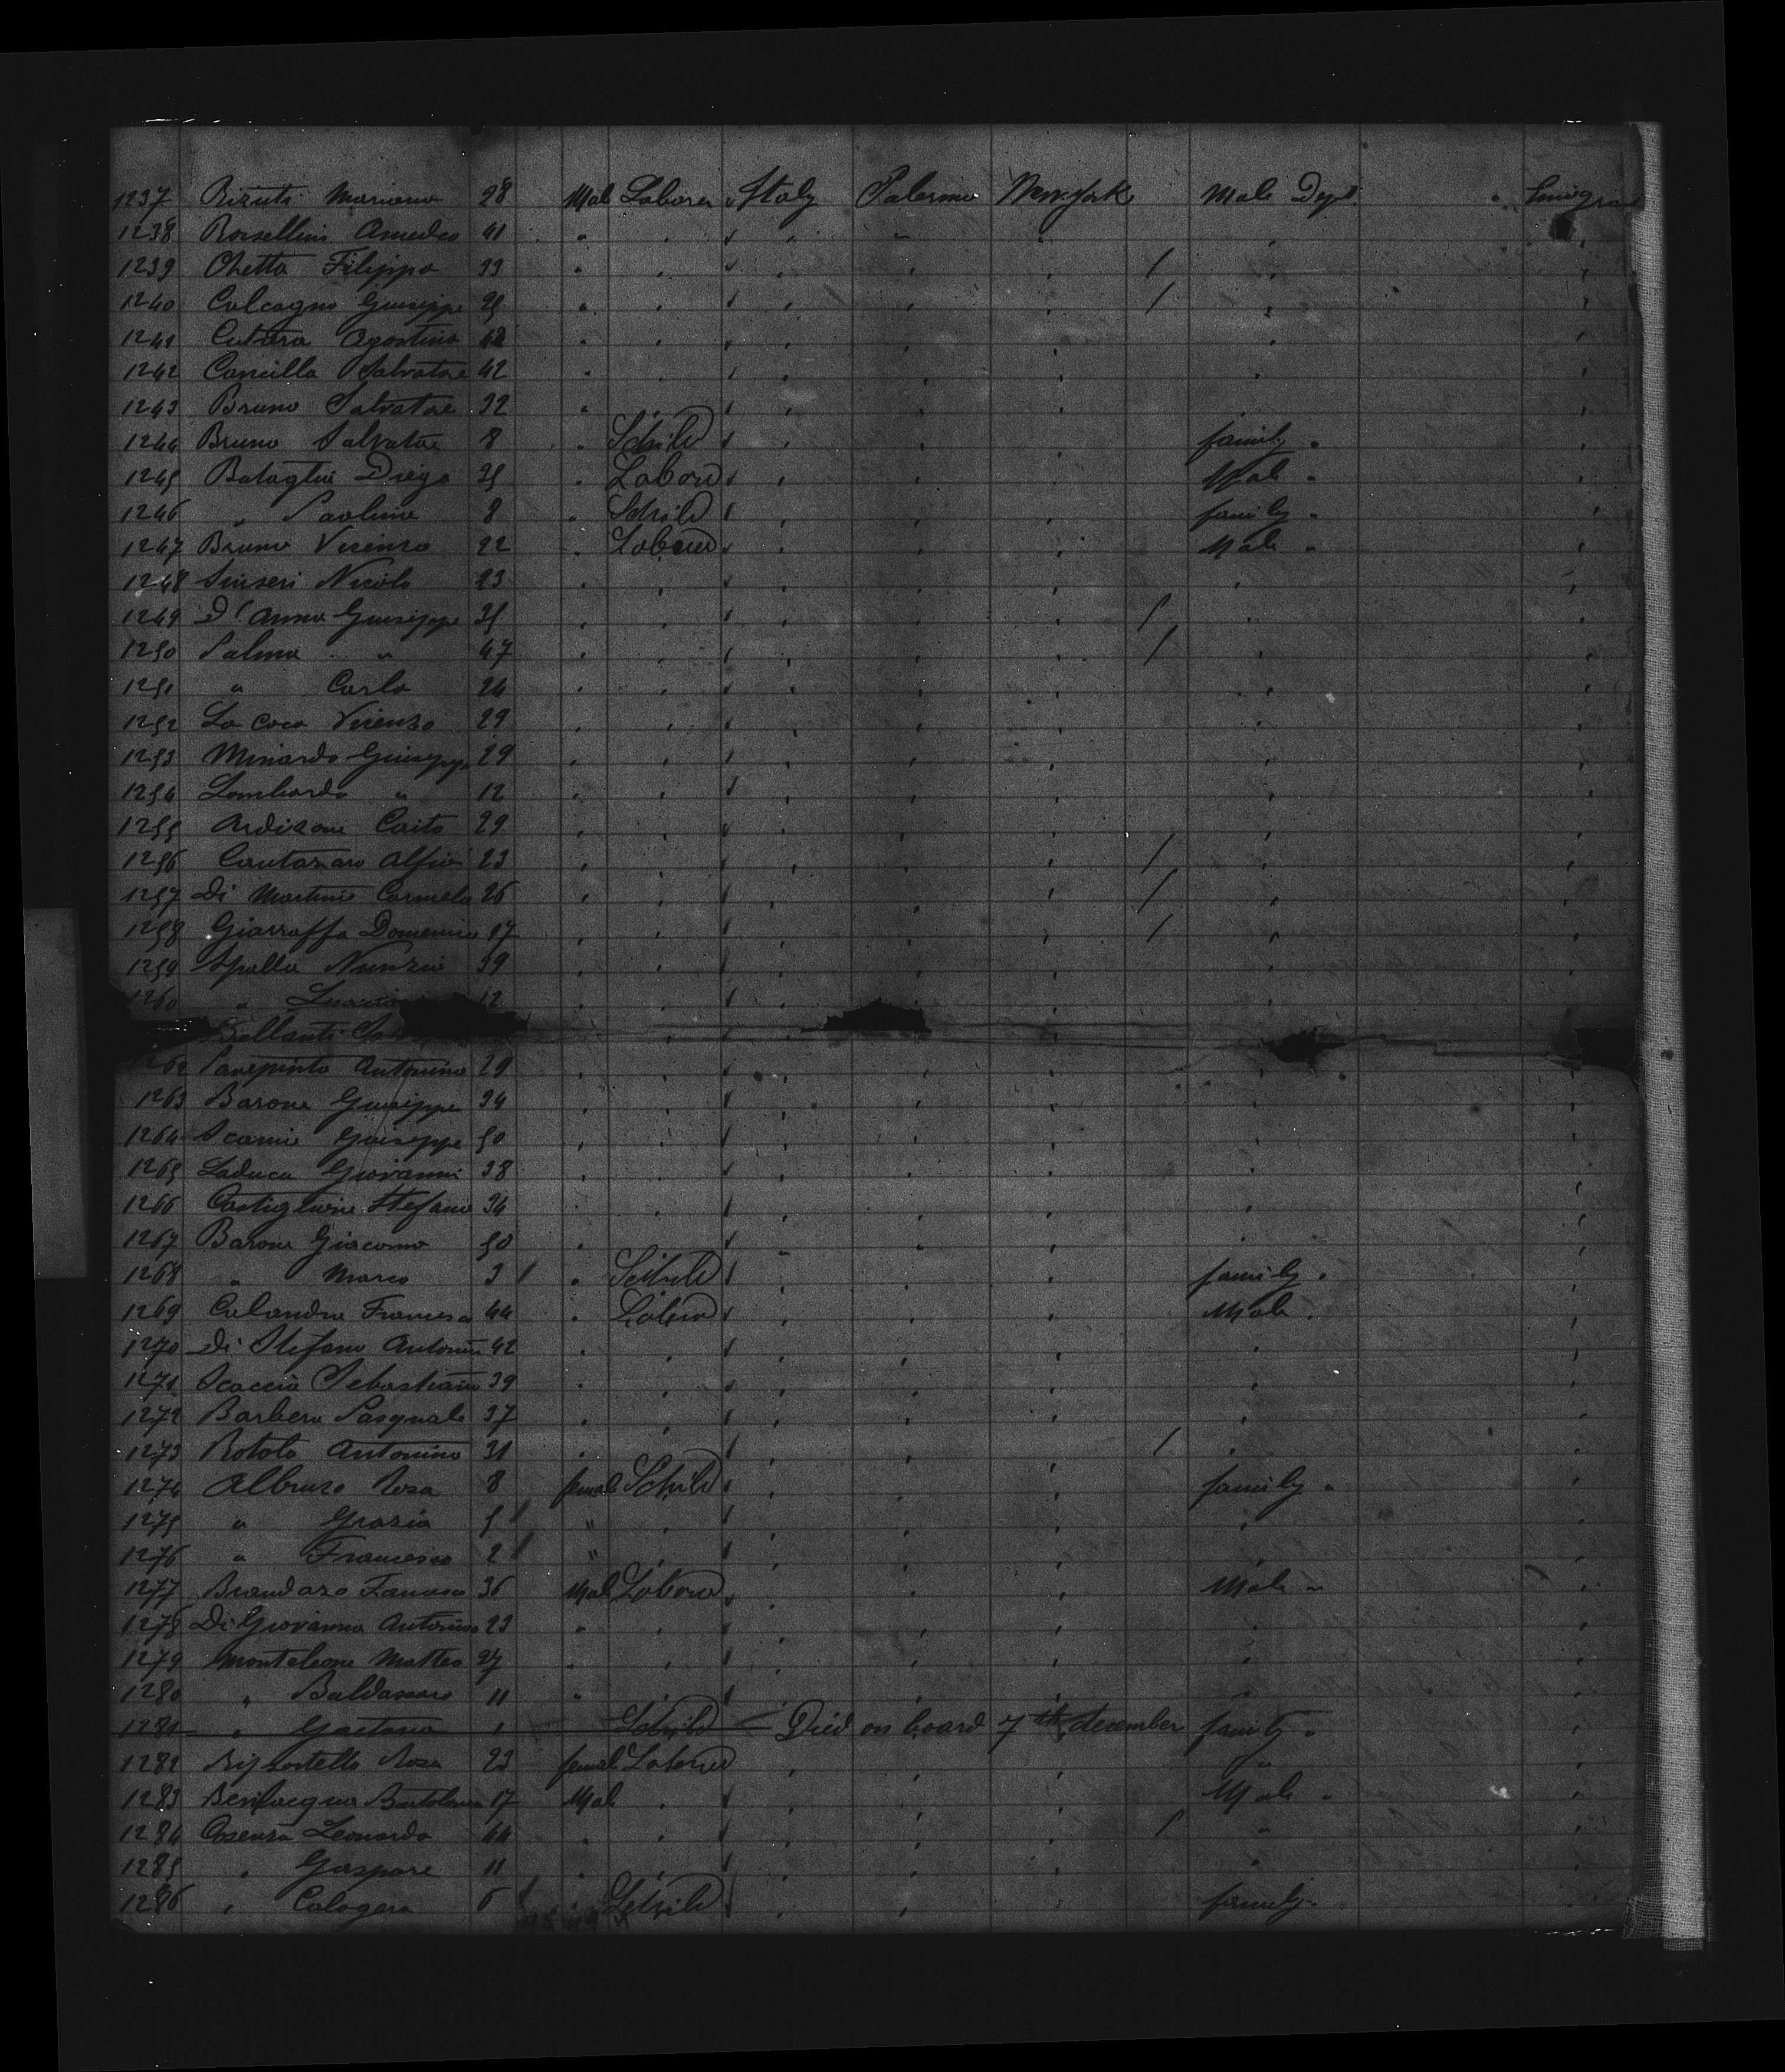 1237 Rizuti Mariano 28 Mal Laborer Italy Palermo New-York Male Dept. Emigrant
1238 Rossellini Amedeo 41
1239 Chetta Filippo 33
1240 Calcagno Giuseppe 25
1241 Cutrera Agostino 42
1242 Cancilla Salvatore 42
1243 Bruno Salvatore 32
1244 Bruno Salvatore 8 Schild family "
1245 Bataglia Diego 35 Labord Male "
1246 " Paolino 8 Schild family "
1247 Bruno Vicenzo 22 Labord Male "
1248 Sinseri Nicolo 23
1249 D'Anna Giuseppe 35
1250 Palma " 47
1251 " Carlo 24
1252 La Coca Vicenzo 29
1253 Minardo Giuseppe 29
1254 Lombardo " 12
1255 Ardizone Corito 29
1256 Cantanaro Alfio 23
1257 Di Martino Carmelo 26
1258 Giarraffa Domenico 17
1259 Spalla Nunzio 39
1260 " 12
Ballanti
1262 Panepinto Antonino 29
1263 Barone Giuseppe 34
1264 Giuseppe 50
1265 Laduca Giovanni 38
1266 Castiglione Stefano 34
1267 Barone Giacomo 50
1268 " Marco 3 " Schild family "
1269 Calandra Francesco 44 " Labord Male "
1270 Di Stefano Antonin 42
1271 Scaccia Sebastiano 39
1272 Barbera Pasquale 37
1273 Rotolo Antonino 31
1274 Albruzo Rosa 8 femal Schild family "
1275 " Grazia 5 "
1276 " Francesco 2 "
1277 Francesco 36 Mal Labord Male "
1278 Di Giovanna Antonino 23
1279 Monteleone Matteo 27
1280 " Baldassare 11
1281 " Gaetano 1 Schild Died on board 7th december family "
1282 Rosa 23 femal Laborer "
1283 Bevilacqua Bartolomeo 17 Mal Male "
1284 Cosenza Leonardo 44 "
1285 " Gaspare 11 "
1286 " Calogero 6 Schild family "